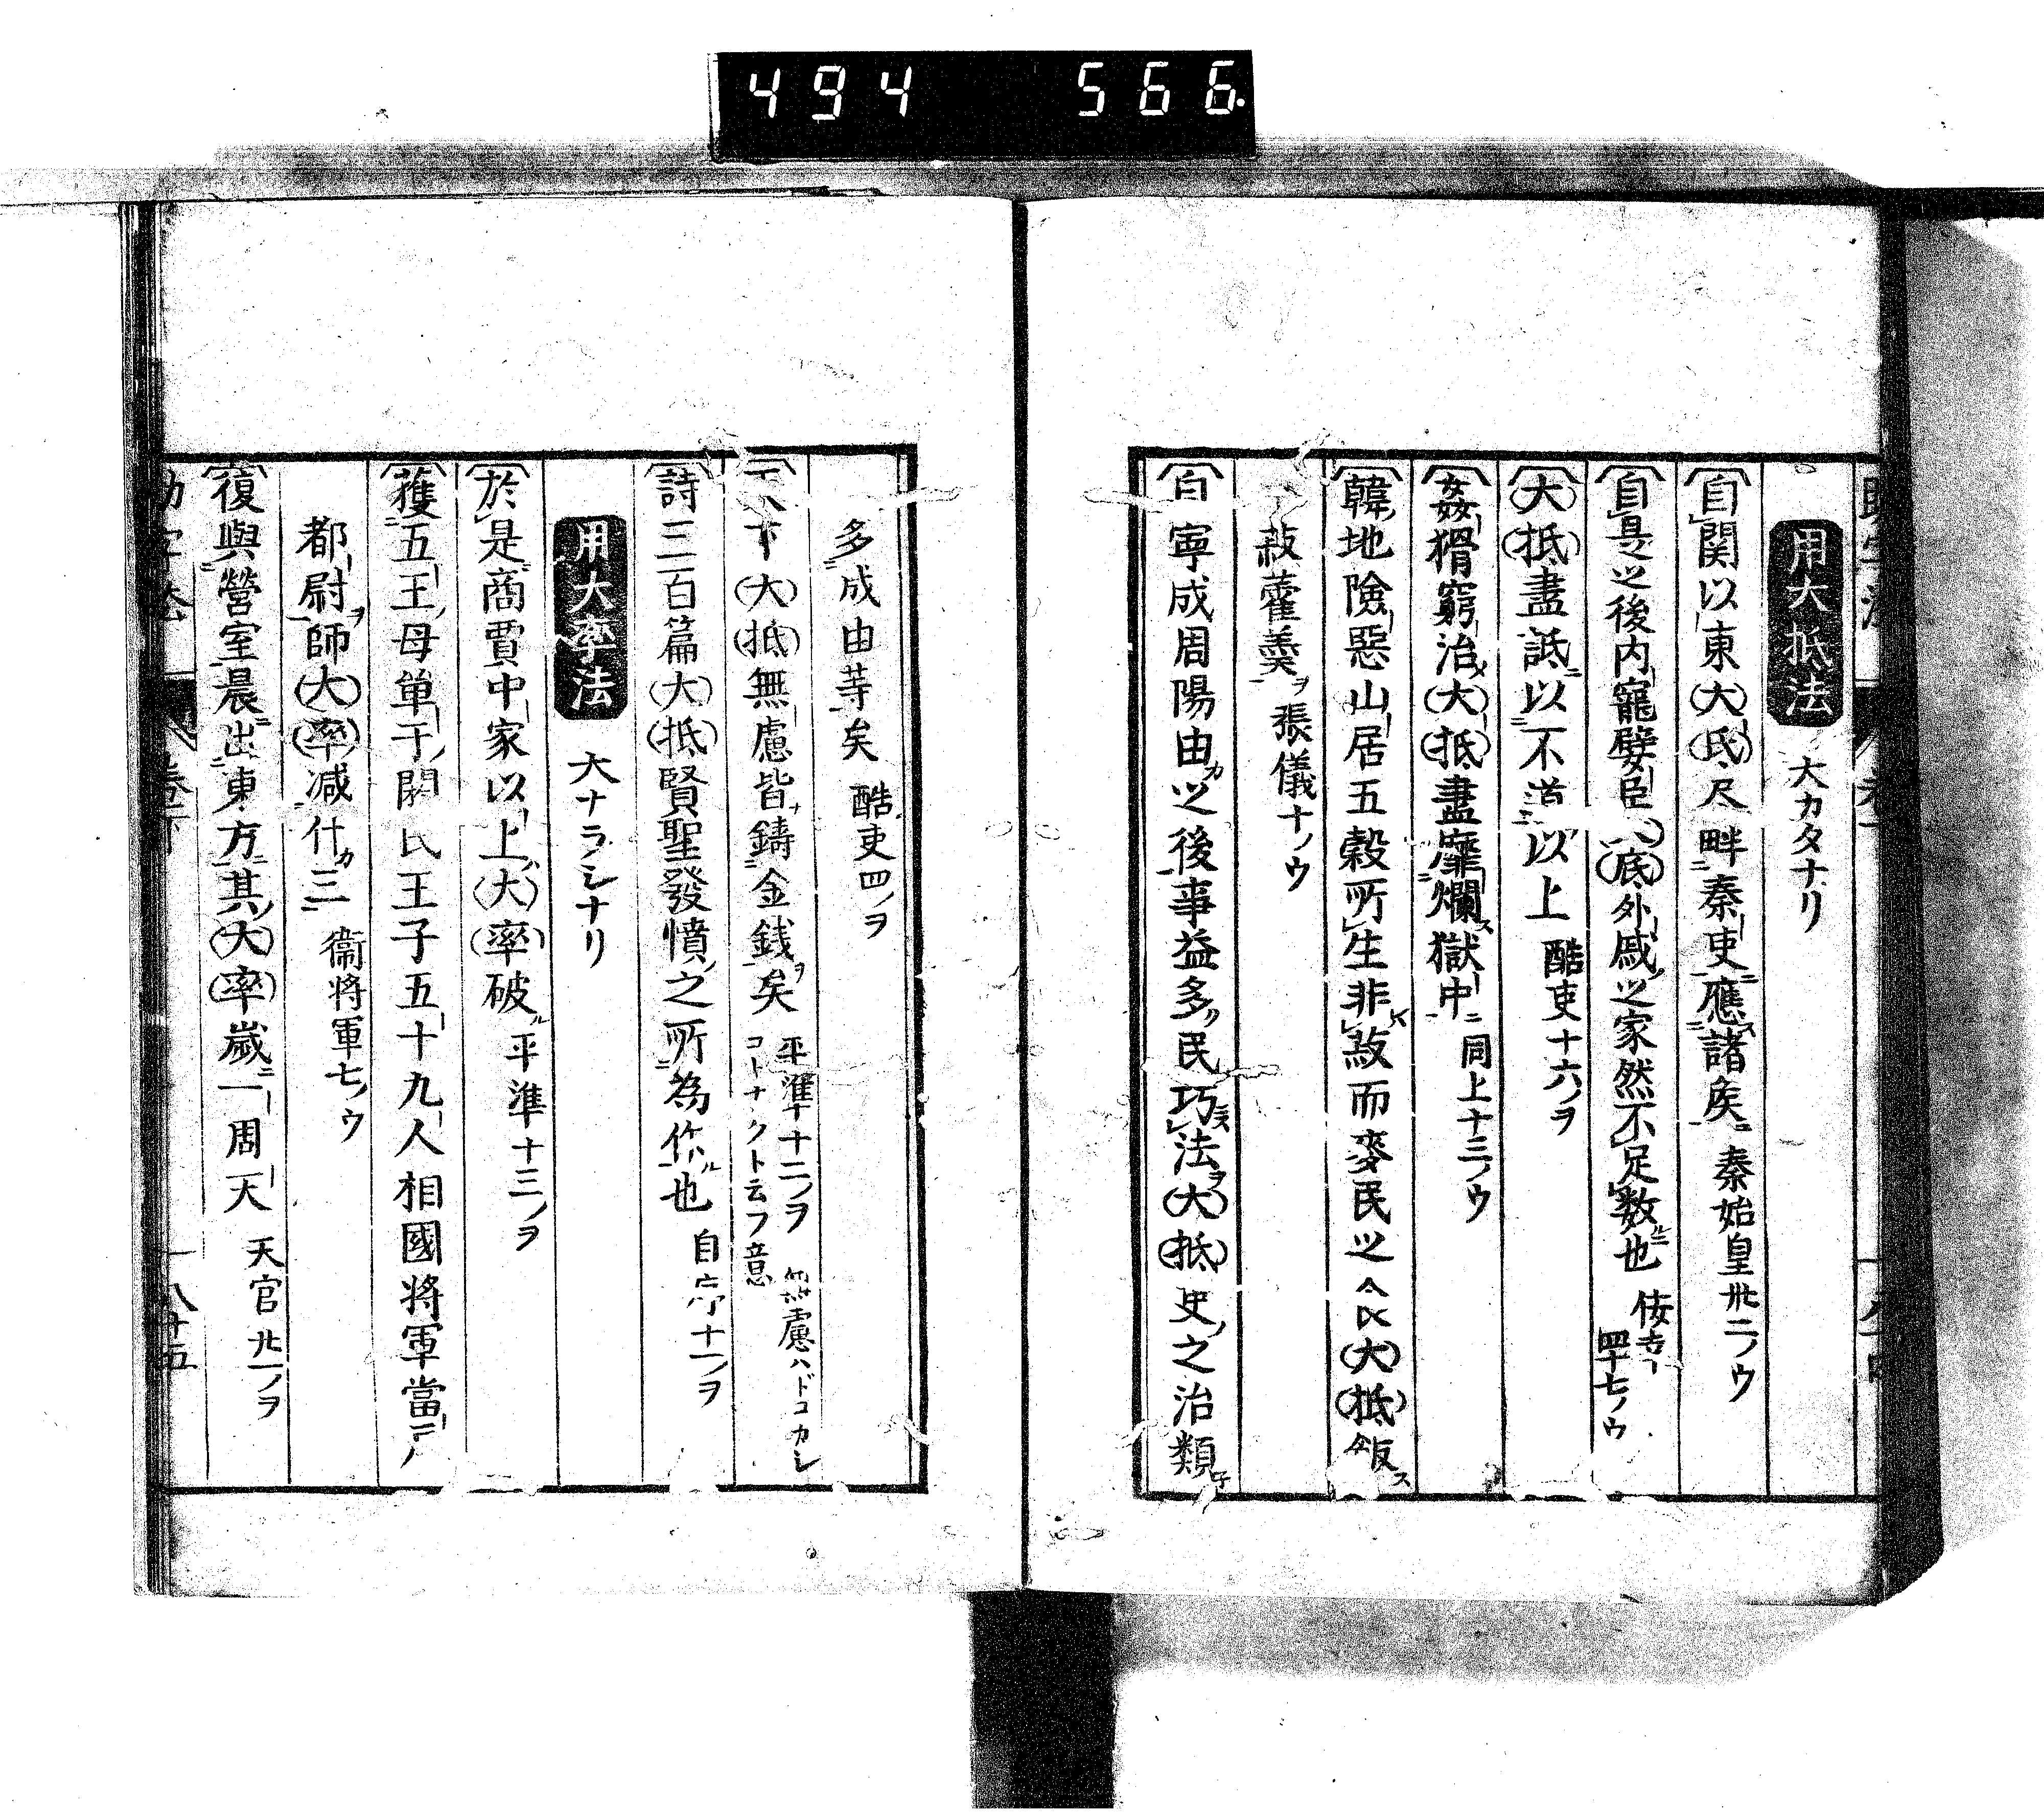 494 566
用大抵法 大カタナリ
自関以東大氐尽畔秦吏應諸矦 秦始皇卅二ノウ
自是之後内寵嬖臣大底外戚之家然不足数也 佞幸 四十七ノウ
大抵盡詆以不道以上 酷吏十六ノヲ
姦猾窮治大抵盡靡爛獄中 同上十三ノウ
韓地險惡山居五穀所生非菽而麥民之食大抵飯
菽藿羮 張儀十ノウ
自寧成周陽由之後事益多民巧法大抵吏之治類
多成由等矣 酷吏四ノヲ
天下大抵無慮皆鋳金銭矣 平準十二ノヲ 無慮ハドコカシコトナクト云フ意
詩三百篇大抵賢聖發憤之所為作也 自序十一ノヲ
用大率法 大ナラシナリ
於是商賈中家以上大率破 平準十三ノヲ
獲五王王母単于閼氏王子五十九人相國将軍當戸
都尉師大率减什三 衞将軍七ノウ
復與營室晨出東方其大率歳一周天 天官廿一ノヲ
助字法 巻下 一八十五